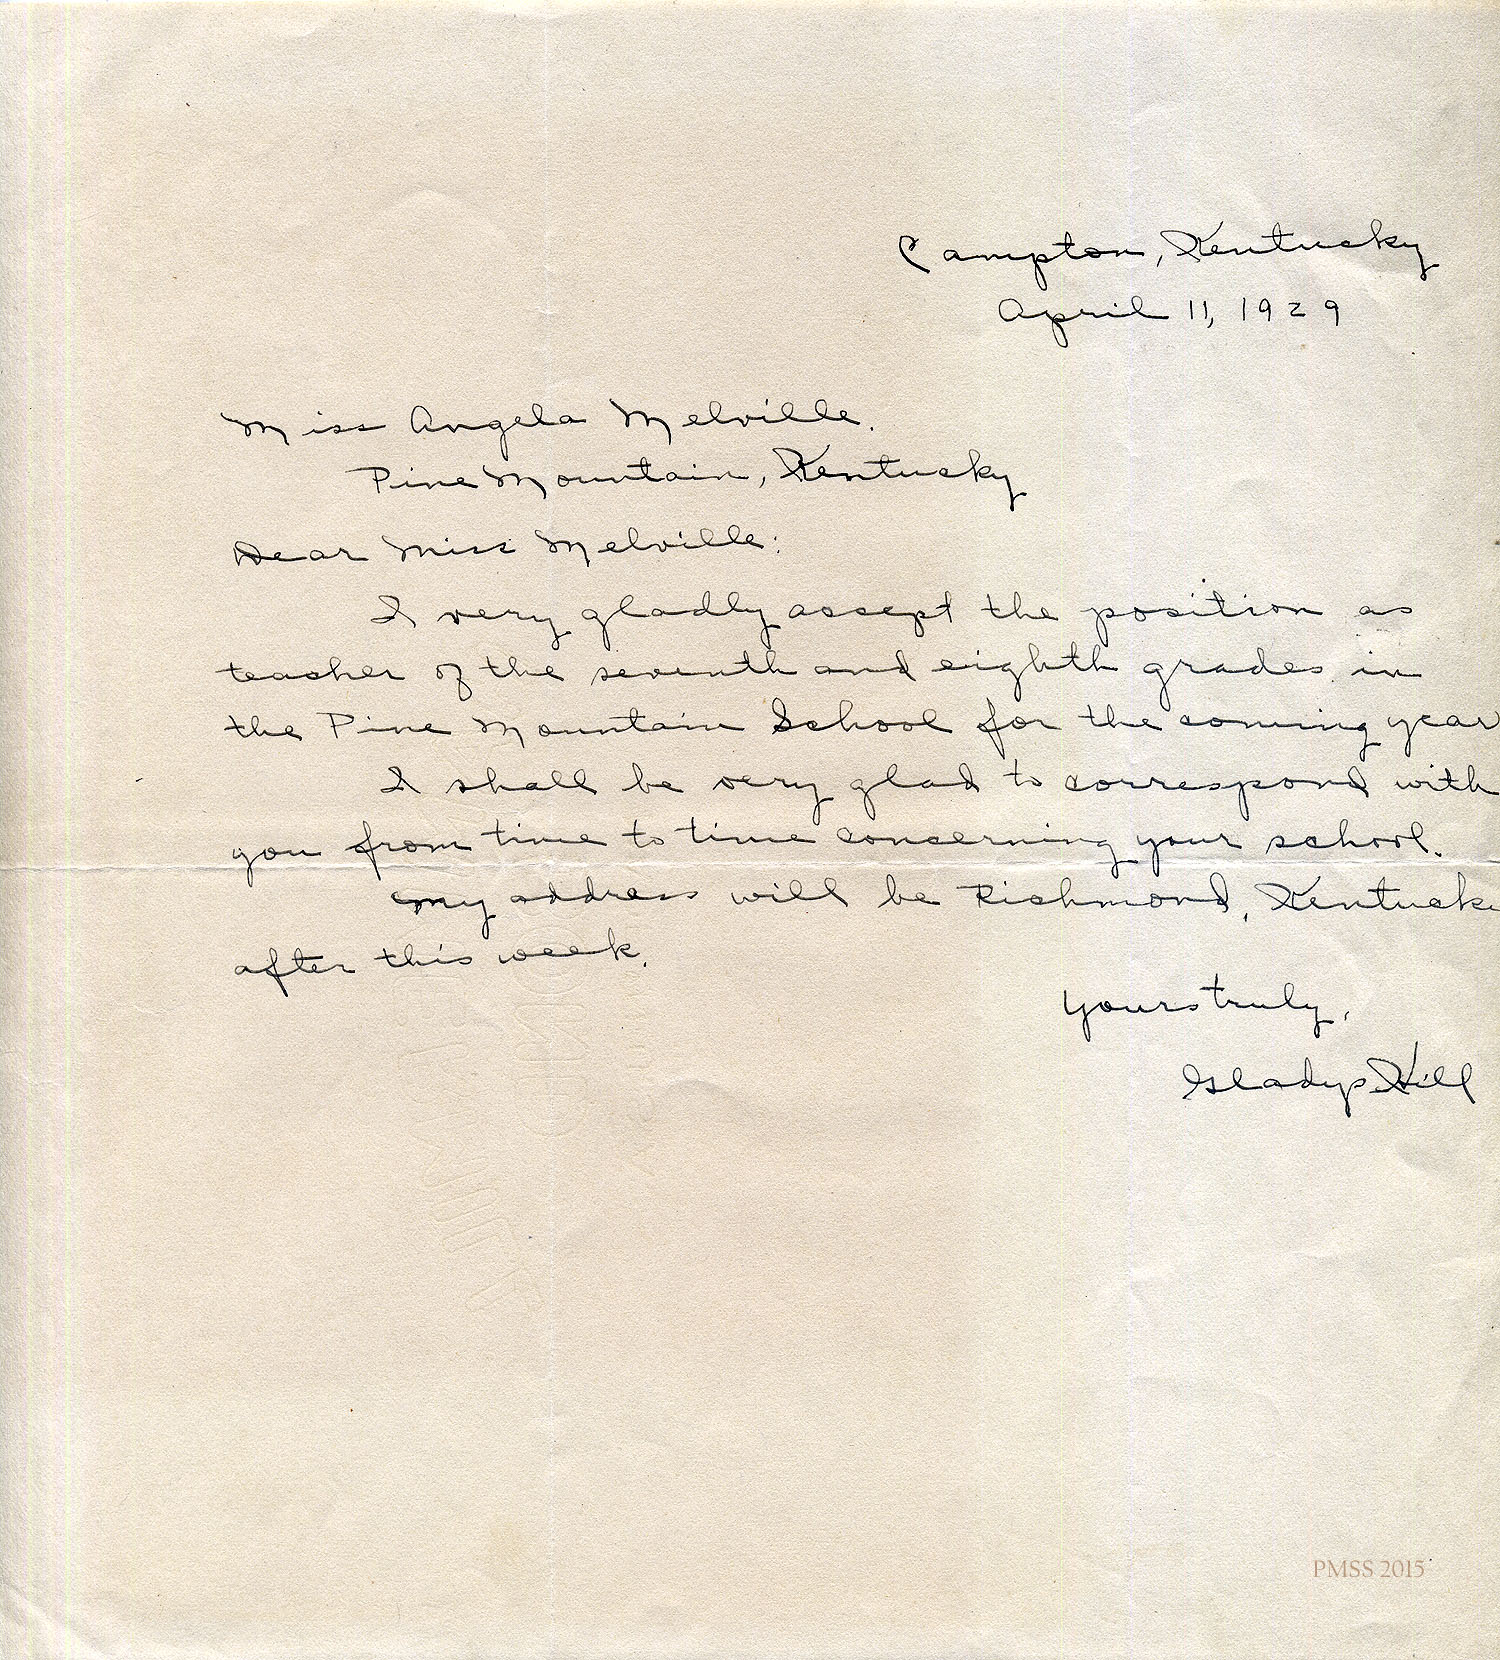 Campton, Kentucky
April 11, 1929
Miss Angela Melville.
Pine Mountain, Kentucky
Dear Miss Melville:
I very gladly accept the position as
teacher of the seventh and eighth grades in
the Pine Mountain School for the coming year
I shall be very glad to correspond with
you from time to time concerning your school.
My address will be Richmond, Kentuck
after this week.
Yours truly,
Gladys Hill
PMSS 2015